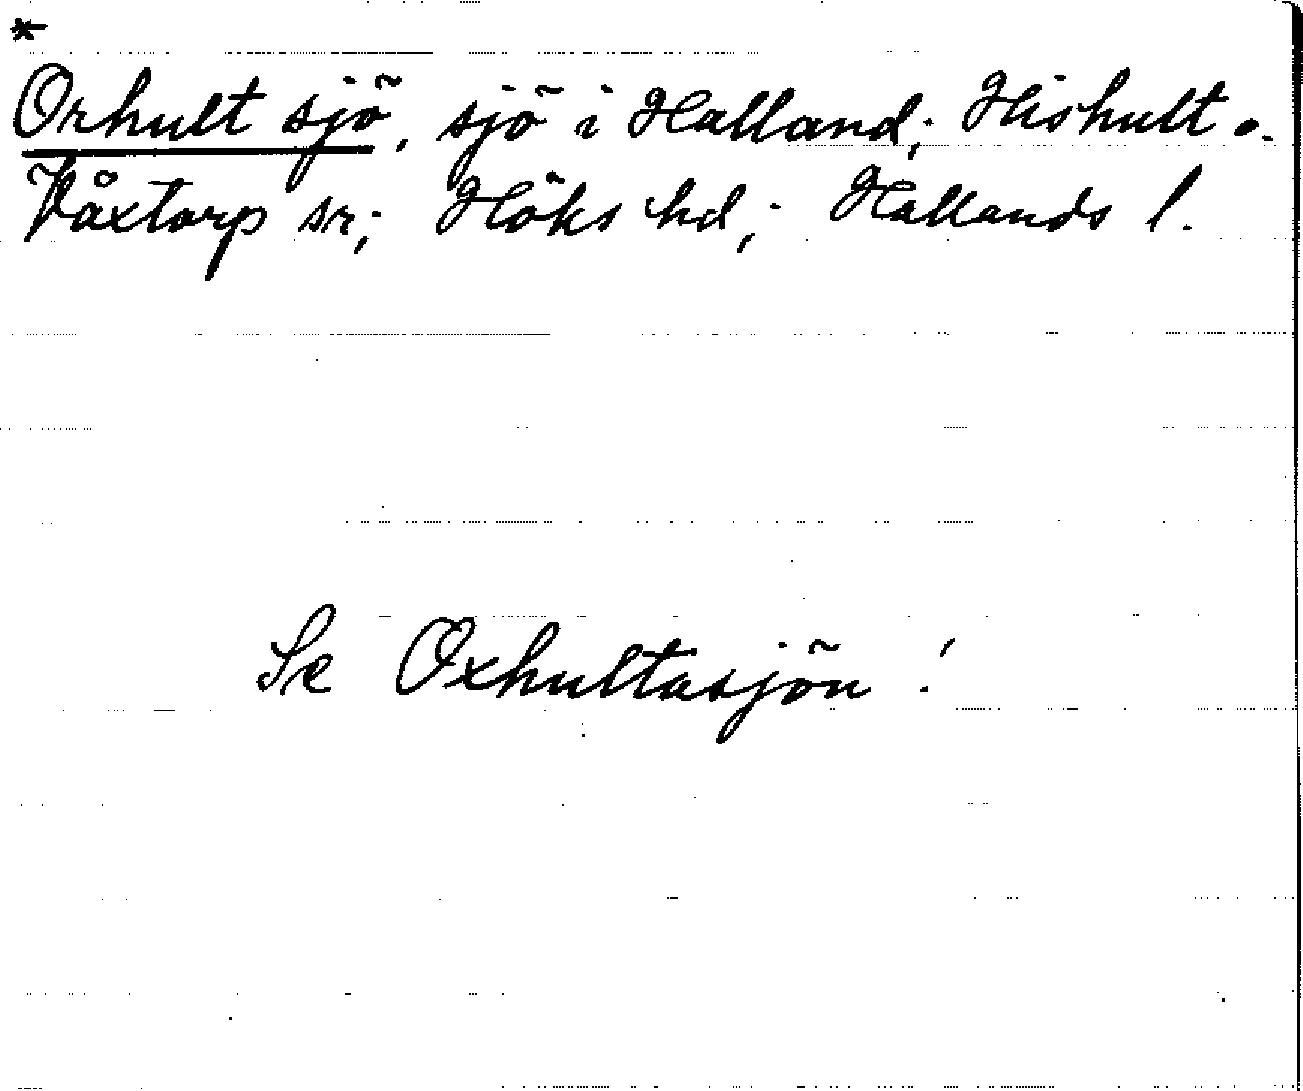 *
Orhult sjö, sjö i Halland; Hishult o.
Våxtorp sr; Höks hd; Hallands l.
Se Oxhultasjön!